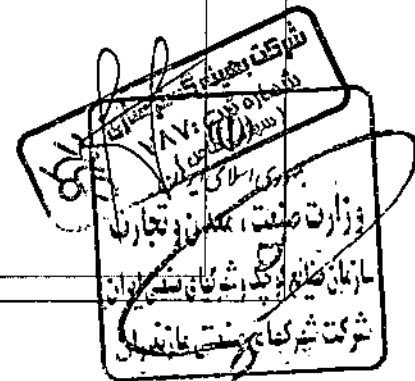 شرکت بهینه
شماره ثبت ۱۸۷۰
جمهوری اسلامی ایران
وزارت صنعت ، معدن و تجارت
سازمان صنایع کوچک و شهرکهای صنعتی ایران
شرکت شهرکهای صنعتی مازندران